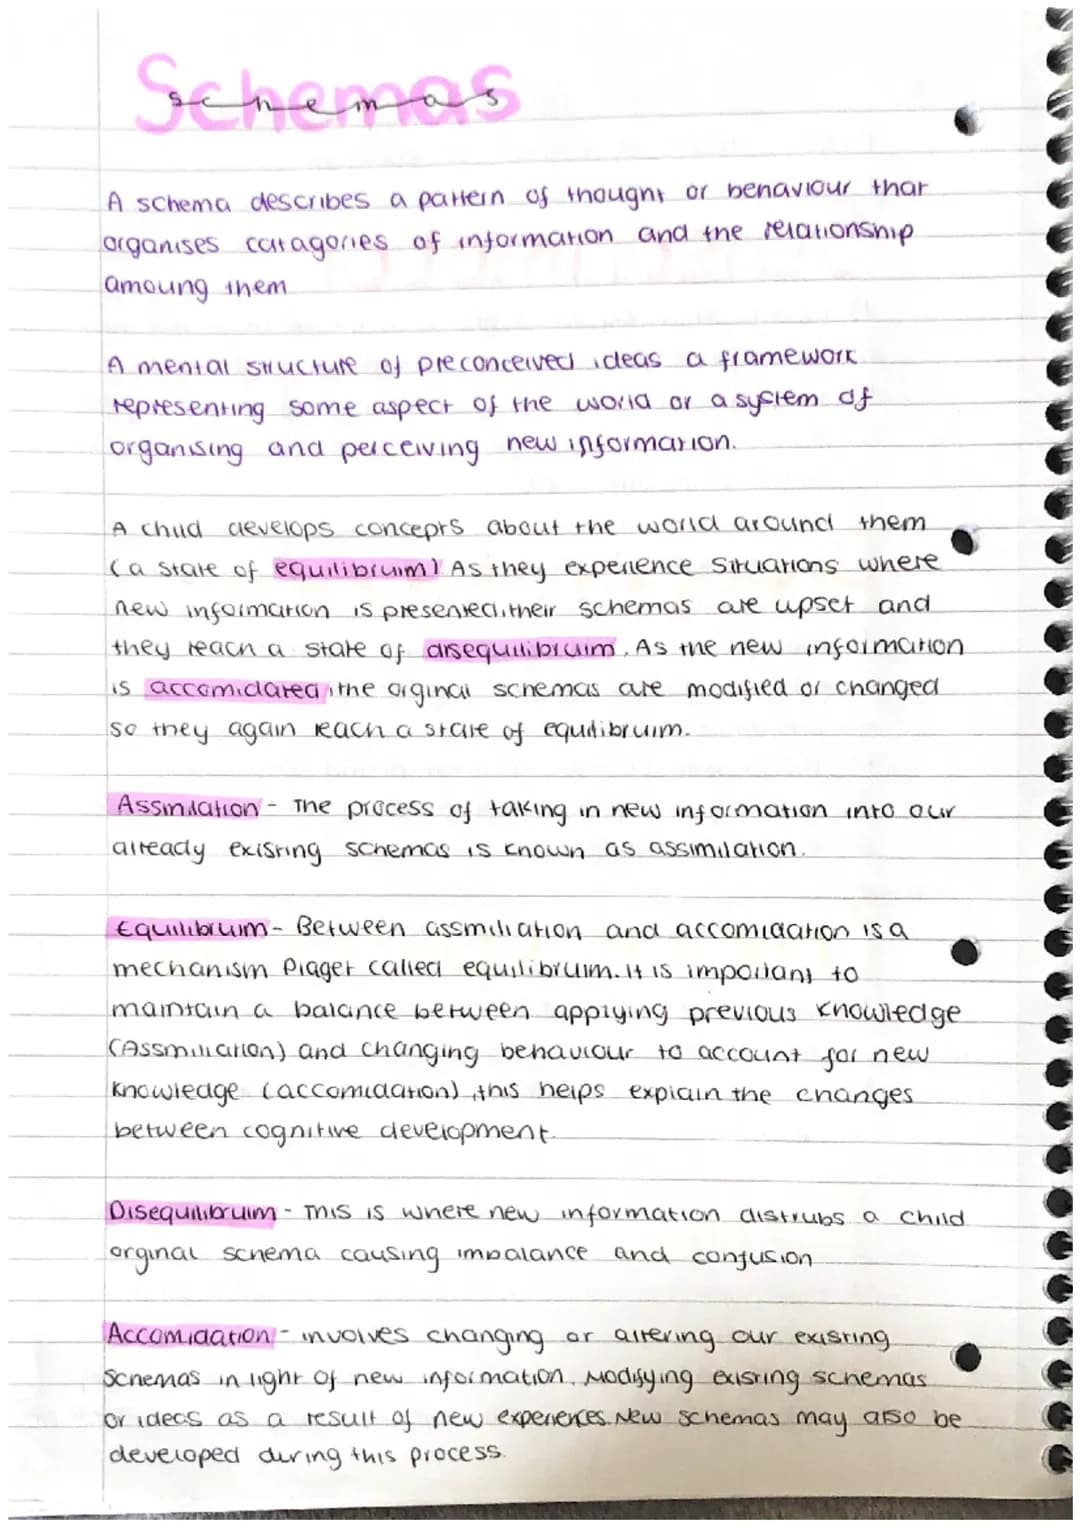 Schemas
schemas
A schema describes a pattern of thought or behaviour that
organises catagories of information and the relationship
amoung them
A mental structure of preconceived ideas a framework
representing some aspect of the world or a system of
organising and perceiving new information.
A child develops concepts about the world around them
(a state of equilibruim) As they experience situations where
new information is presented, their schemas are upset and
they reach a state of disequilibruim. As the new information
is accomidated, the orginal schemas are modified or changed
so they again reach a state of equilibruim.
Assmilation - The process of taking in new information into our
already existing schemas is known as assimilation.
Equilibruim - Between assmiliation and accomidation is a
mechanism Piaget called equilibruim. It is important to
maintain a balance between applying previous knowledge
(Assmiliation) and changing behaviour to account for new
knowledge (accomidation), this helps explain the changes
between cognitive development.
Disequilibruim - This is where new information distrubs a child
orginal schema causing imbalance and confusion
Accomidation - involves changing or altering our existing
schemas in light of new information. Modifying existing schemas
or ideas as a result of new experiences. New schemas may also be
developed during this process.